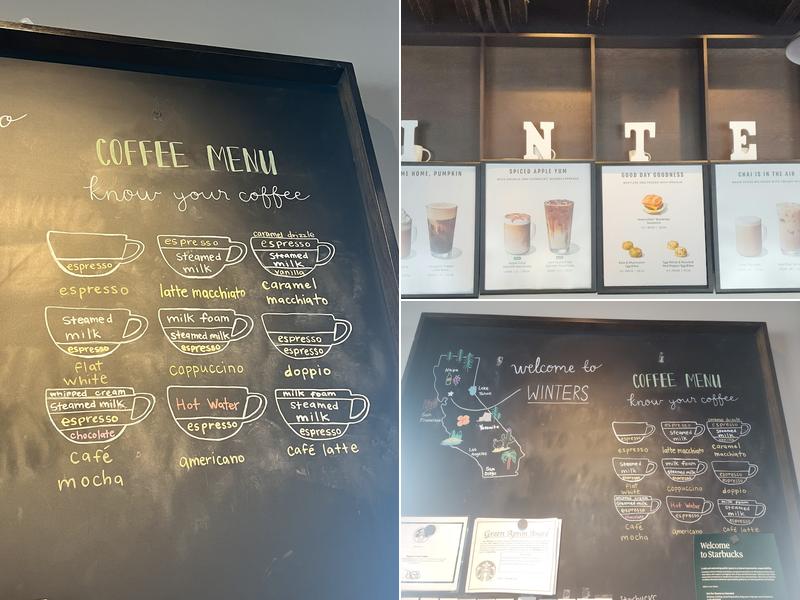 COFFEE MENU
know your coffee
espresso
espresso
espresso
Steamed
milk
latte macchiato
caramel drizzle
espresso
Steamed
milk
vanilla
caramel
macchiato
Steamed
milk
espresso
flat
white
milk foam
Steamed milk
espresso
cappuccino
espresso
espresso
doppio
whipped cream
Steamed milk
espresso
chocolate
café
mocha
Hot Water
espresso
americano
milk foam
steamed
milk
espresso
café latte
N T E
ME HOME, PUMPKIN
SPICED APPLE YUM
GOOD DAY GOODNESS
CHAI IS IN THE AIR
welcome to
WINTERS
Napa
Lake
Tahoe
San
Francisco
Yosemite
Los
Angeles
San
Diego
COFFEE MENU
know your coffee
espresso
espresso
espresso
Steamed
milk
latte macchiato
caramel drizzle
espresso
Steamed
milk
caramel
macchiato
Steamed
milk
espresso
flat
white
milk foam
Steamed milk
espresso
cappuccino
espresso
espresso
doppio
whipped cream
Steamed milk
espresso
café
mocha
Hot Water
espresso
americano
milk foam
Steamed
milk
espresso
café latte
Green Apron Award
Welcome
to Starbucks